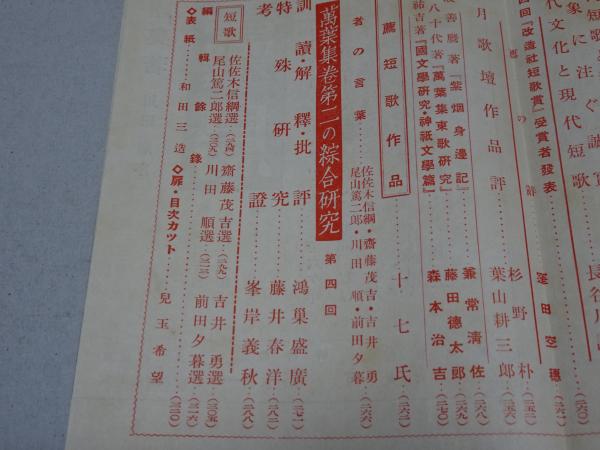 短歌を
象に注ぐ誠
代文化と現代短歌
長谷川
四回『改造社短歌賞』受賞者發表
(二六一)
窪田空穗
月歌壇作品評
杉野朴
(二五二)
葉山耕三郎
(二五六)
善麿著『紫烟身邊記』
兼常淸佐
(二六八)
八十代著『萬葉集東歌研究』
藤田德太郎
(二六九)
祐吉著『國文學研究・神祇文學篇』
森本治吉
(二七〇)
薦短歌作品
十七氏
(二六二)
者の言葉
佐佐木信綱・齋藤茂吉・吉井勇
尾山篤二郎・川田順・前田夕暮
(二六六)
萬葉集卷第二の綜合硏究 第四回
訓讀・解釋・批評
鴻巢盛廣
(二七一)
特殊硏究
藤井春洋
(二八二)
考證
峯岸義秋
(二八八)
短歌
佐佐木信綱選
齋藤茂吉選
吉井勇選
尾山篤二郎選
川田順選
前田夕暮選
編輯餘錄
(三二〇)
◇表紙 和田三造 ◇扉・目次カット 兒玉希望